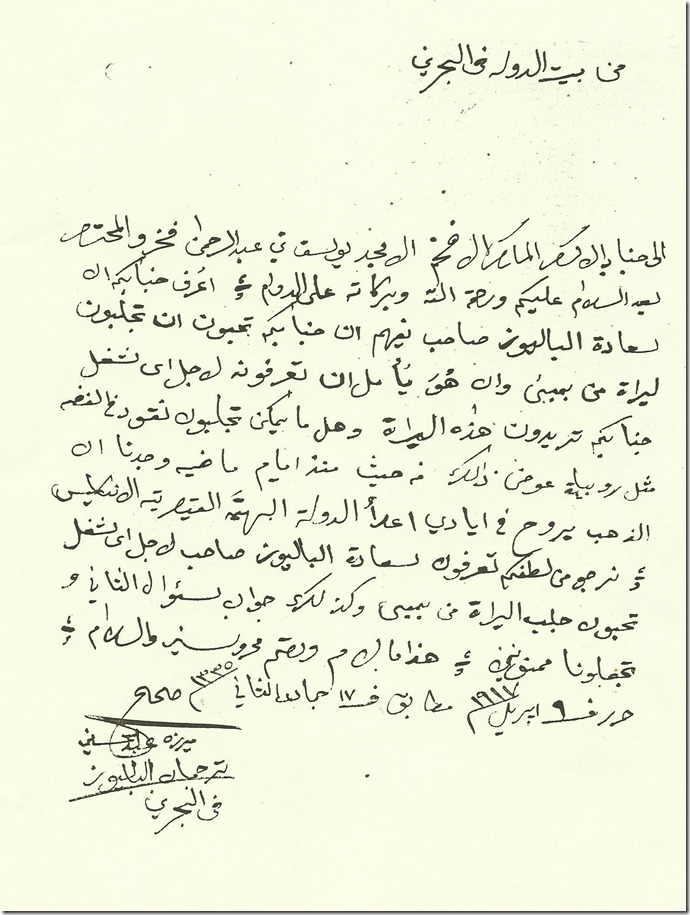 من بيت الدوله في البحرين
الى جناب الاكرم الماكرم الافخم الامجد يوسف بن عبدالرحمن فخرو المحترم
بعد السلام عليكم ورحمة الله وبركاته على الدوام اعرف جنابكم ان
سعادة الباليوز صاحب يفهم ان جنابكم تحبون ان تجلبون
ليراة من بمبئ وان هُوَ يأمل ان تعرفونه لاجل اى شغل
جنابكم تريدون هذه اليراة وهل ما يمكن تجلبون نقود في الفضه
مثل روبية عوض ذالك من حيث منذ امام ماضيه وجدنا ان
الذهب يروح في ايادي اعدأ الدولة البهيّة القيصرية الانكليس
نرجو من لطفكم تعرفون سعادة الباليوز صاحب لاجل اى شغل
تحبون جلب اليراة من بمبئ وكذلك جواب سئوال الثاني و
تجعلونا ممنونين هذا مالزم ودمتم محروسين والسلام
حرر في ٩ ابريل ١٩١٧م مطابق في ١٧ جماد الثاني ١٣٣٥ صحح
ميرزه
ترجمان الباليوز
في البحرين